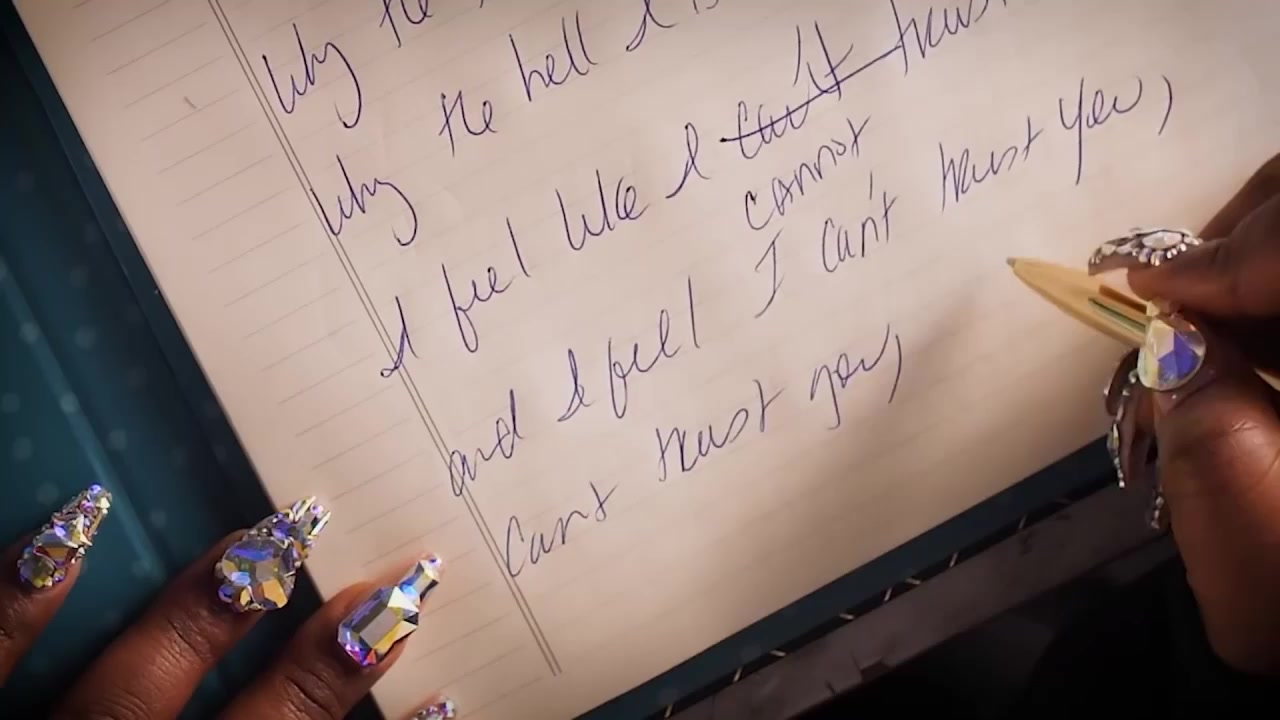 Why the
Why the hell I
I feel like I can't trust
cannot
and I feel I can't trust you,
Cant trust you,